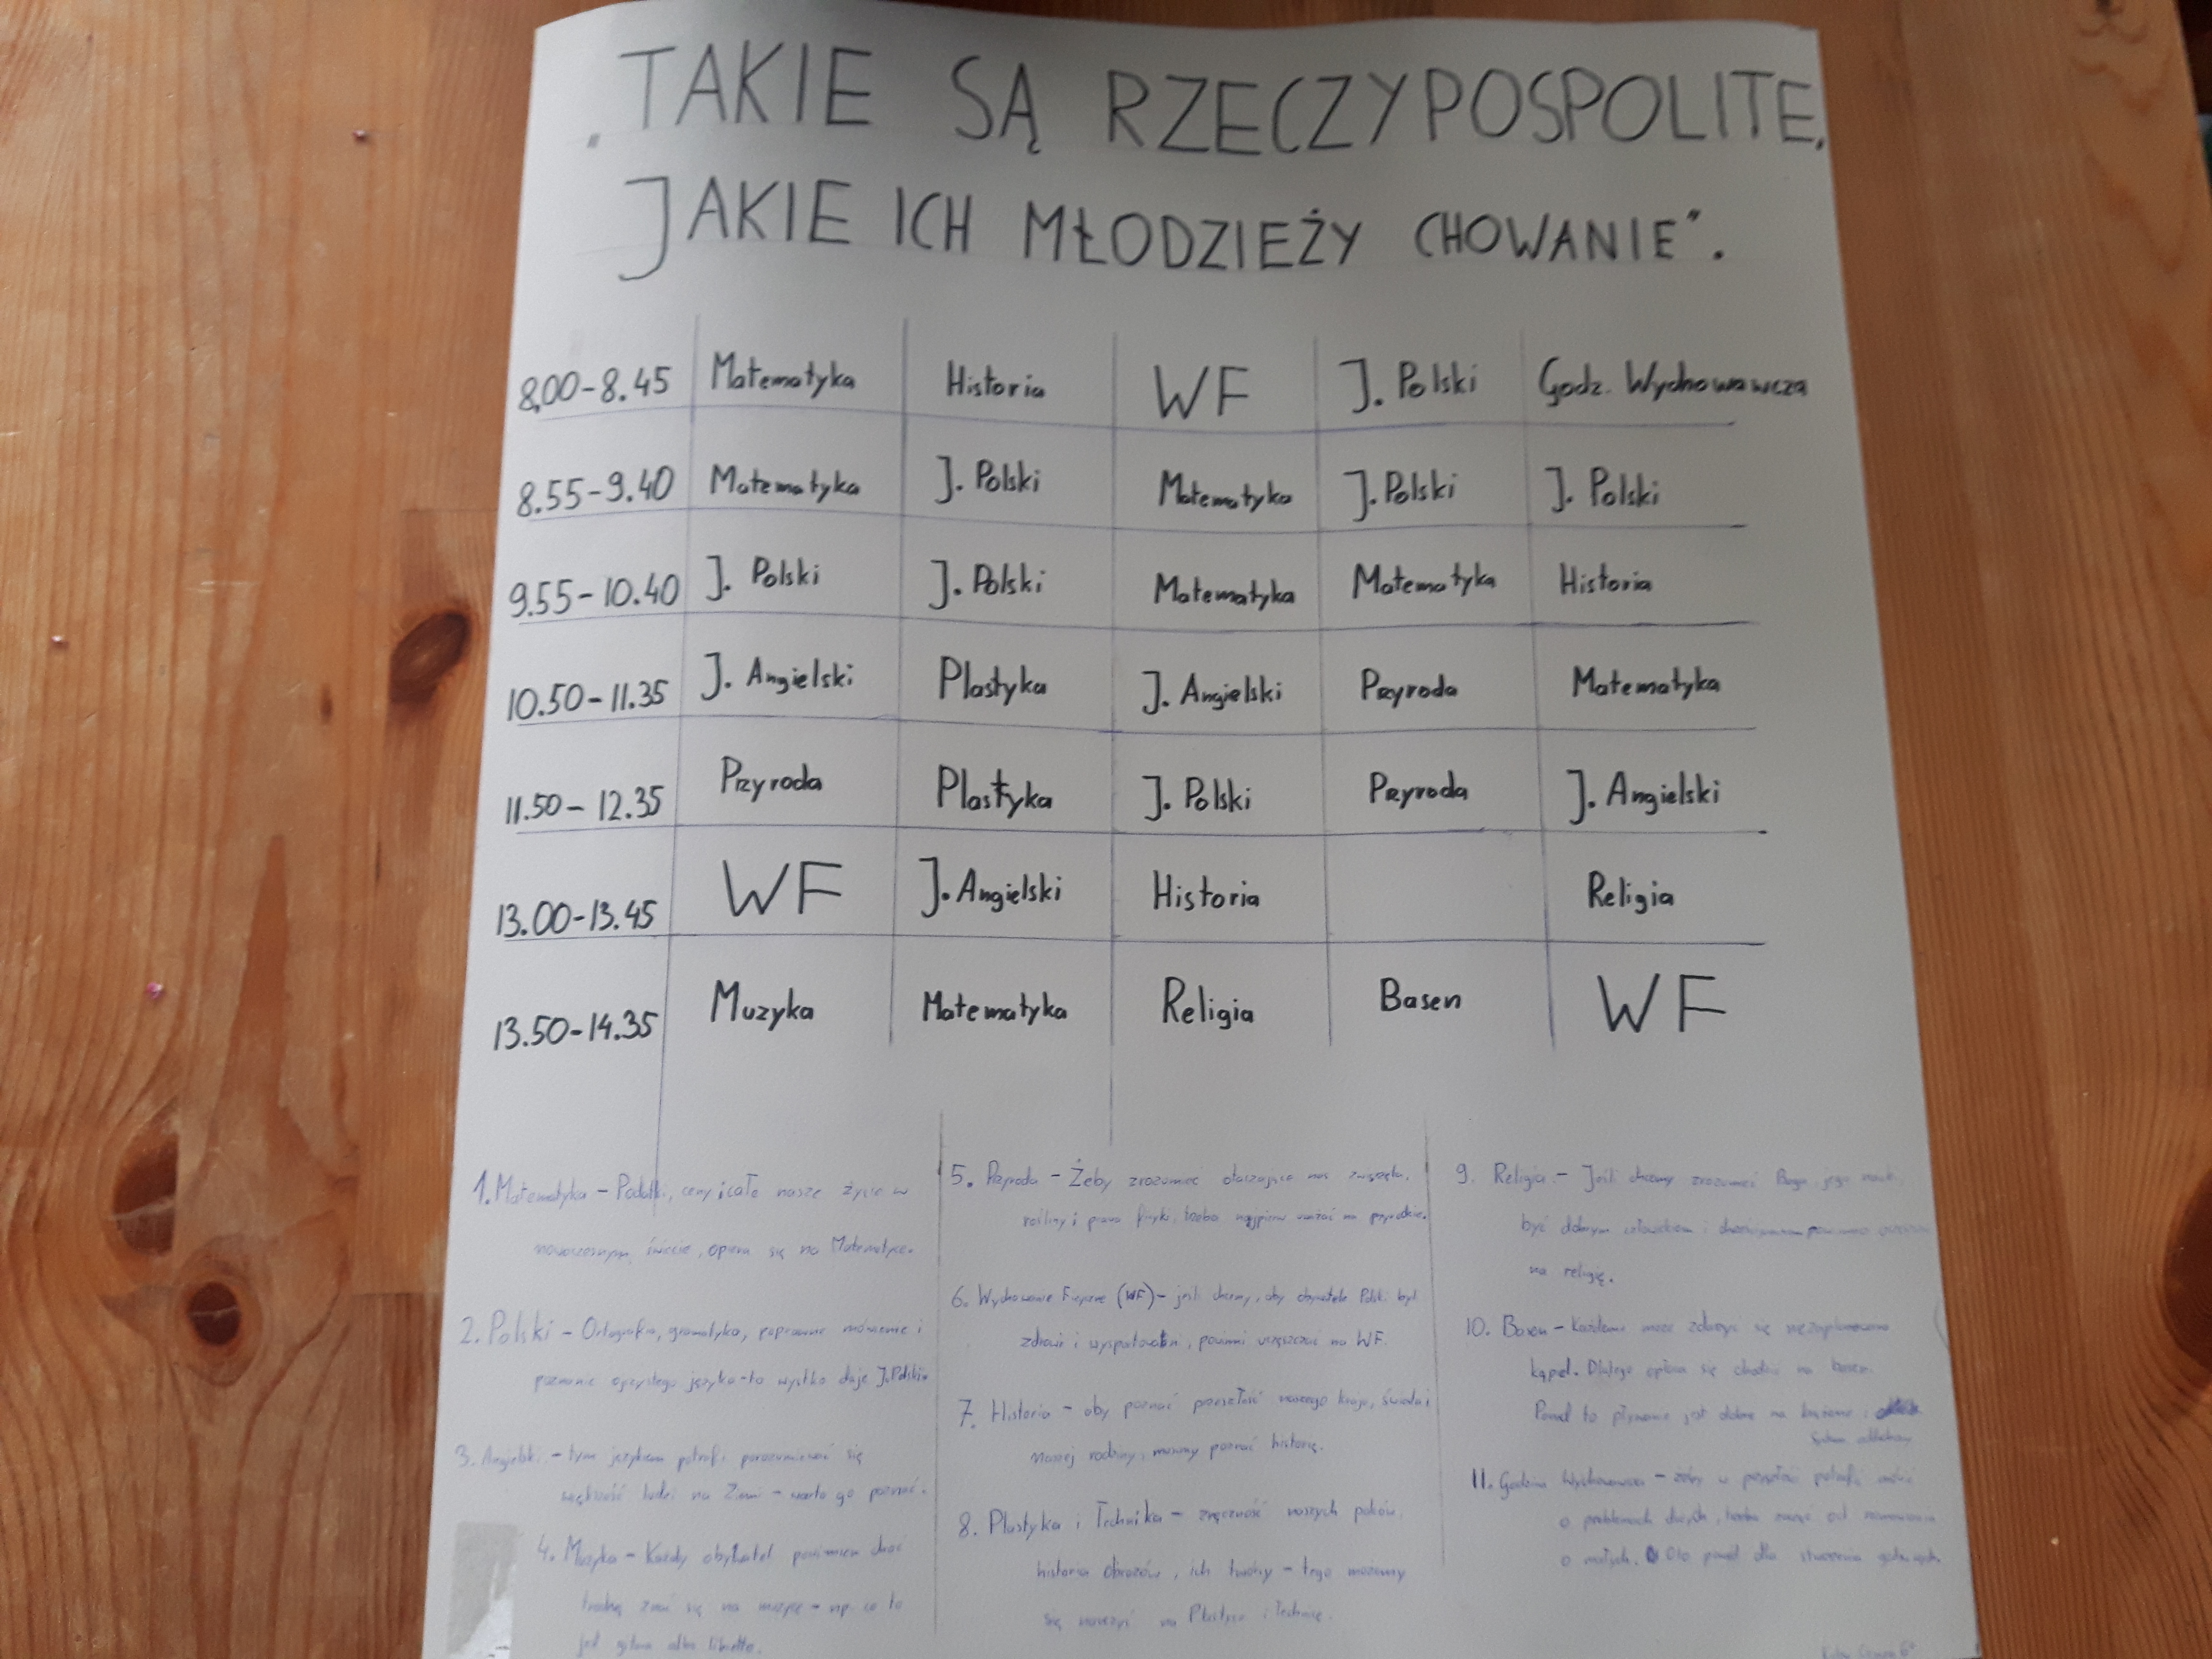 „TAKIE SĄ RZECZYPOSPOLITE,
JAKIE ICH MŁODZIEŻY CHOWANIE".
8.00-8.45 Matematyka Historia WF J. Polski Godz. Wychowawcza
8.55-9.40 Matematyka J. Polski Matematyka J. Polski J. Polski
9.55-10.40 J. Polski J. Polski Matematyka Matematyka Historia
10.50-11.35 J. Angielski Plastyka J. Angielski Przyroda Matematyka
11.50-12.35 Przyroda Plastyka J. Polski Przyroda J. Angielski
13.00-13.45 WF J. Angielski Historia Religia
13.50-14.35 Muzyka Matematyka Religia Basen WF
1. Matematyka - Podatki, ceny i całe nasze życie w
nowoczesnym świecie, opiera się na Matematyce.
2. Polski - Ortografia, gramatyka, poprawne mówienie i
poznanie ojczystego języka - to wystko daje J. Polski
3. Angielski - tym językiem potrafi porozumiewać się
większość ludzi na Ziemi - warto go poznać.
4. Muzyka - Każdy obywatel powinien choć
trochę znać się na muzyce - np. co to
jest gitara albo libretto.
5. Przyroda - Żeby zrozumieć otaczające nas zwierzęta,
rośliny i prawa fizyki, trzeba najpierw uważać na przyrodzie.
6. Wychowanie Fizyczne (WF) - jeśli chcemy, aby obywatele Polski byli
zdrowi i wysportowani, powinni uczęszczać na WF.
7. Historia - aby poznać przeszłość naszego kraju, świata i
naszej rodziny, musimy poznać historię.
8. Plastyka i Technika - zręczność naszych palców,
historia obrazów, ich twórcy - tego możemy
się nauczyć na Plastyce i Technice.
9. Religia - Jeśli chcemy zrozumieć Boga, jego nauk,
być dobrym człowiekiem i chrześcijaninem powinno
na religię.
10. Basen - Każdemu może zdarzyć się niezaplanowana
kąpiel. Dlatego opłaca się chodzić na basen.
Ponad to pływanie jest dobre na
11. Godzina Wychowawcza - żeby w przyszłości potrafić mówić
o problemach dużych, trzeba zacząć od rozmawiania
o małych. Oto powód dla stworzenia godz. wych.